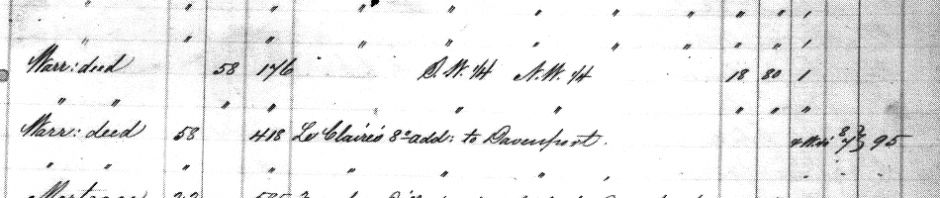 " " " " " " " " 1
" " " " " " " " 1
Warr: deed 58 176 S. W. 1/4 N. W. 1/4 18 80 1
" " " " " " " " "
Warr: deed 58 418 Le Claire's 8th add: to Davenport. 95
" " " " " "
Mortgage